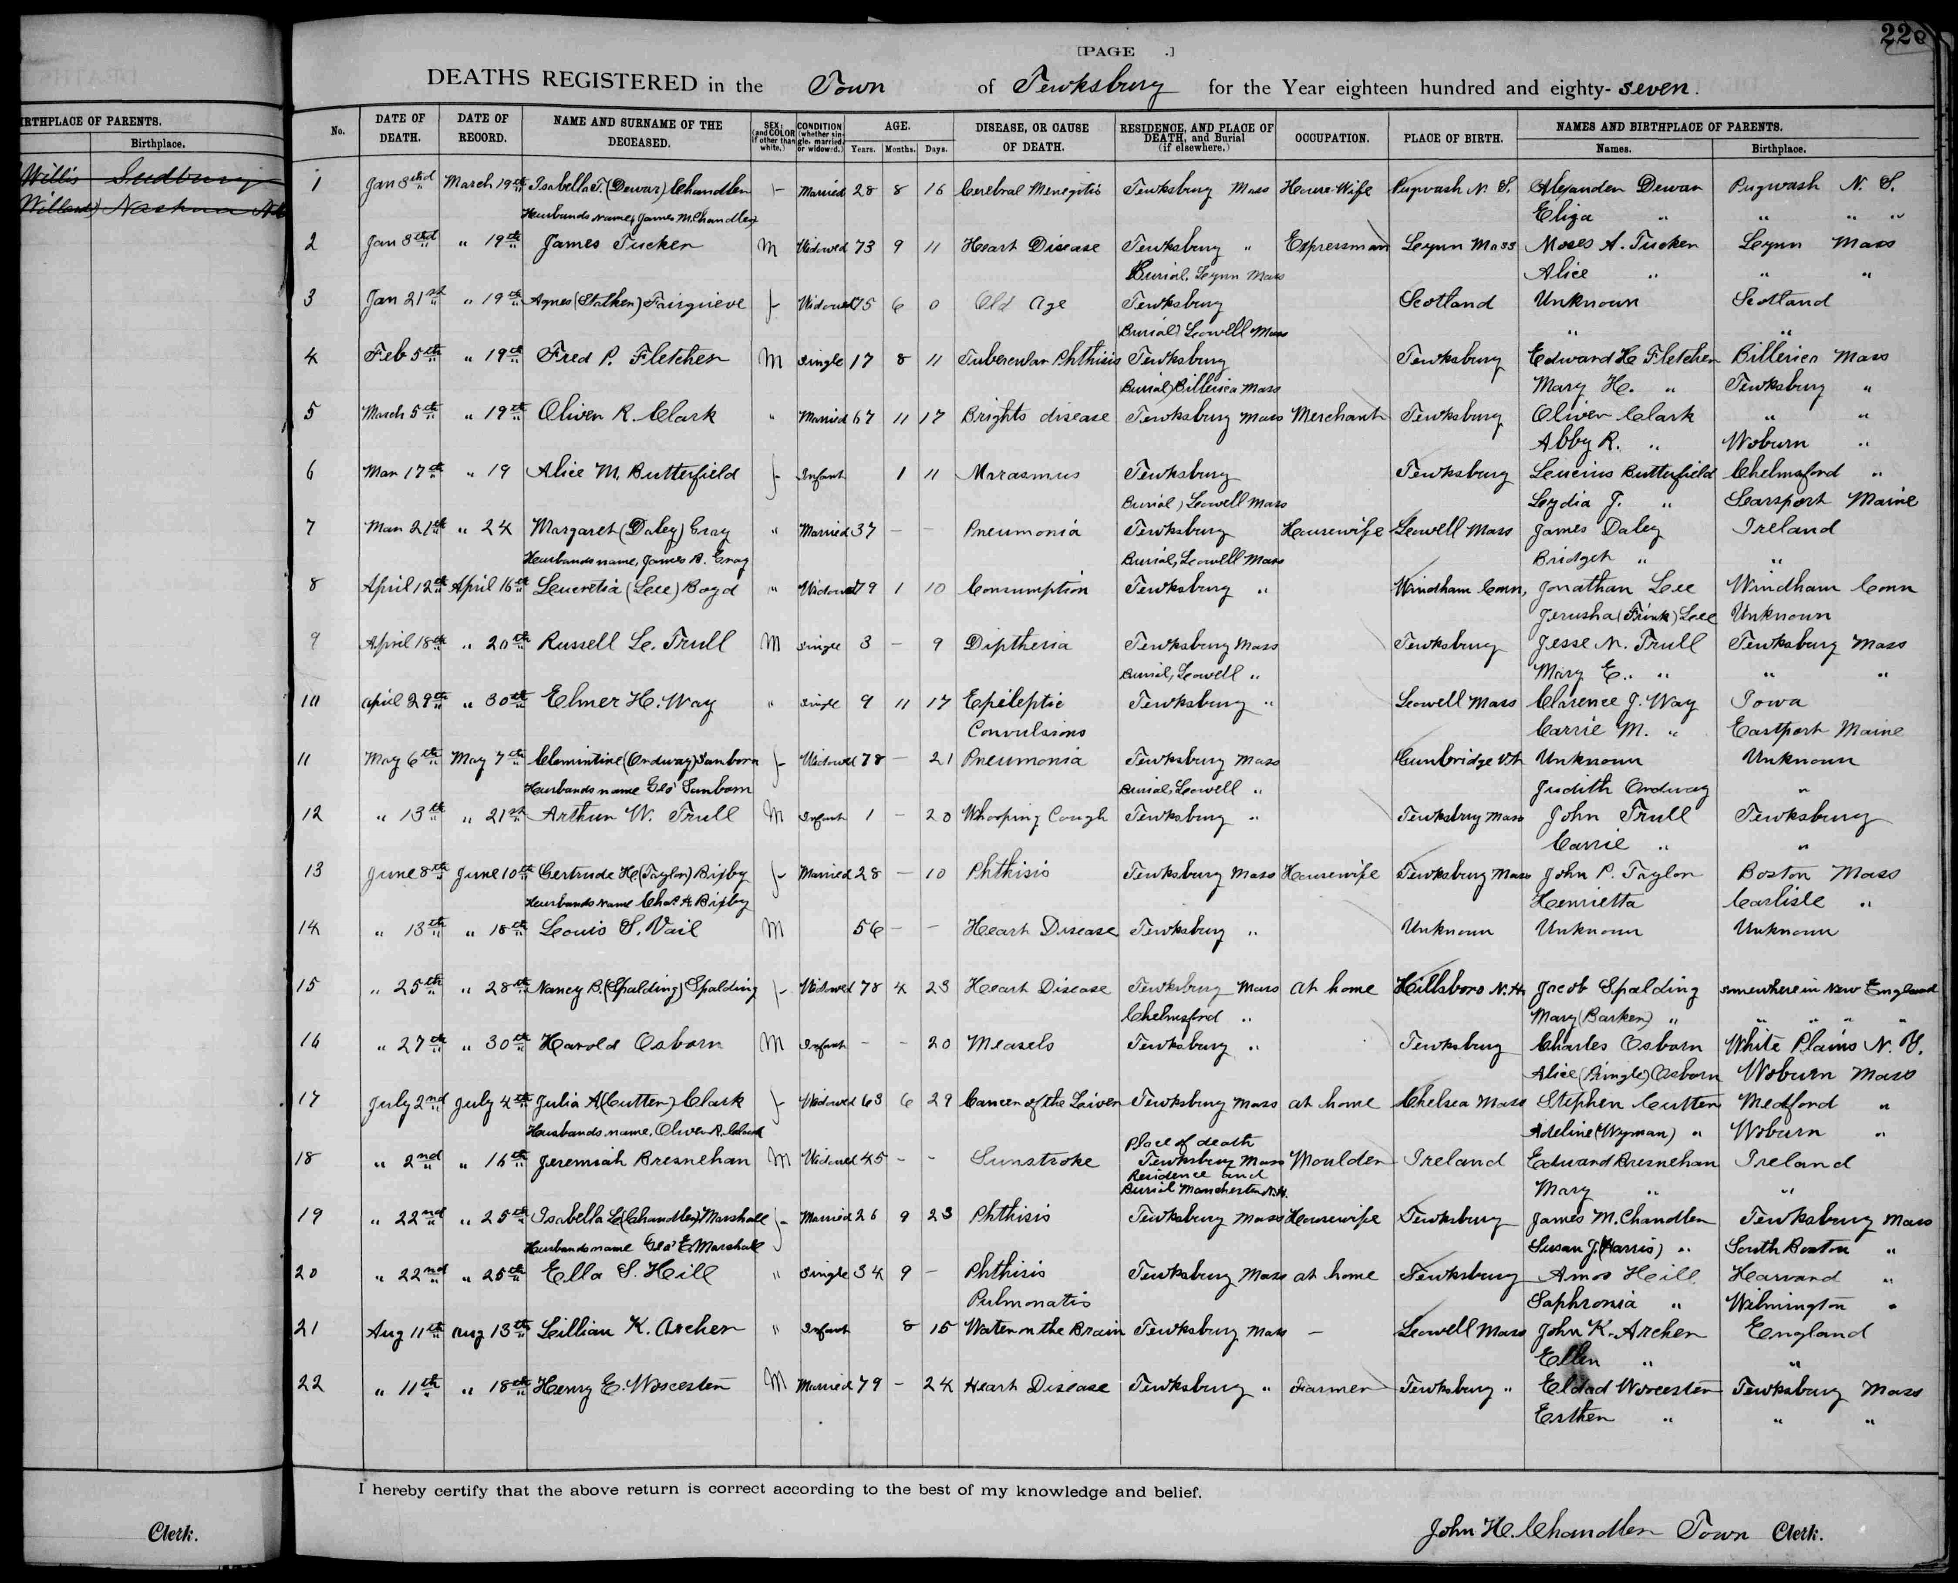 22
[PAGE .]
DEATHS REGISTERED in the Town of Tewksbury for the Year eighteen hundred and eighty- seven.
BIRTHPLACE OF PARENTS.
Birthplace.
Willis Sudbury
Willard) Nashua
No. DATE OF DEATH. DATE OF RECORD. NAME AND SURNAME OF THE DECEASED. SEX; (and COLOR if other than white.) CONDITION (whether single, married, or widowed.) AGE. Years. Months. Days. DISEASE, OR CAUSE OF DEATH. RESIDENCE, AND PLACE OF DEATH, and Burial (if elsewhere.) OCCUPATION. PLACE OF BIRTH. NAMES AND BIRTHPLACE OF PARENTS. Names. Birthplace.
1 Jan 3rd March 19th Isabella T. (Dewar) Chandler F Married 28 8 16 Cerebral Menegitis Tewksbury Mass House-Wife Pugwash N. S. Alexander Dewar Pugwash N. S.
Husbands name, James M. Chandler Eliza " " " "
2 Jan 3rd " 19th James Tucker M Widowed 73 9 11 Heart Disease Tewksbury " Expressman Lynn Mass Moses A. Tucker Lynn Mass
Burial. Lynn Mass Alice " " "
3 Jan 21st " 19th Agnes (Stalker) Fairgrieve F Widowed 75 6 0 Old Age Tewksbury Scotland Unknown Scotland
Burial) Lowell Mass " "
4 Feb 5th " 19th Fred P. Fletcher M Single 17 8 11 Tubercular Phthisis Tewksbury Tewksbury Edward H Fletcher Billerica Mass
Burial) Billerica Mass Mary H. " Tewksbury "
5 March 5th " 19th Oliver R. Clark " Married 67 11 17 Brights disease Tewksbury Mass Merchant Tewksbury Oliver Clark " "
Abby R. " Woburn "
6 Mar 17th " 19 Alice M. Butterfield F Infant 1 11 Marasmus Tewksbury Tewksbury Lucius Butterfield Chelmsford "
Burial, Lowell Mass Lydia J. " Searsport Maine
7 Mar 21st " 24 Margaret (Daley) Gray " Married 37 - - Pneumonia Tewksbury Housewife Lowell Mass James Daley Ireland
Husbands name, James B. Gray Burial, Lowell Mass Bridget " "
8 April 12th April 16th Lucretia (Lee) Boyd " Widowed 79 1 10 Consumption Tewksbury " Windham Conn, Jonathan Lee Windham Conn
Jerusha (Frink) Lee Unknown
9 April 18th " 20th Russell L. Trull M Single 3 - 9 Diptheria Tewksbury Mass Tewksbury Jesse N. Trull Tewksbury Mass
Burial, Lowell " Mary E. " " "
10 April 29th " 30th Elmer H. Way " Single 9 11 17 Epileptic Tewksbury " Lowell Mass Clarence J. Way Iowa
Convulsions Carrie M. " Eastport Maine
11 May 6th May 7th Clemintine (Ordway) Sanborn F Widowed 78 - 21 Pneumonia Tewksbury Mass Cumbridge Vth Unknown Unknown
Husbands name Geo Sanborn Burial, Lowell " Judith Ordway "
12 " 13th " 21st Arthur W. Trull M Infant 1 - 20 Whooping Cough Tewksbury " Tewksbury Mass John Trull Tewksbury
Carrie " "
13 June 8th June 10th Gertrude H (Taylor) Bixby F Married 28 - 10 Phthisis Tewksbury Mass Housewife Tewksbury Mass John P. Taylor Boston Mass
Husbands name Chas. H Bixby Henrietta Carlisle "
14 " 13th " 18th Louis S. Vail M 56 - - Heart Disease Tewksbury " Unknown Unknown Unknown
15 " 25th " 28th Nancy B. (Spalding) Spalding F Widowed 78 4 23 Heart Disease Tewksbury Mass At home Hillsboro N.H. Jacob Spalding somewhere in New England
Chelmsford " Mary (Barker) " " " " "
16 " 27th " 30th Harold Osborn M Infant - - 20 Measels Tewksbury " Tewksbury Charles Osborn White Plains N. Y.
Alice (Pringle) Osborn Woburn Mass
17 July 2nd July 4th Julia A (Cutter) Clark F Widowed 63 6 29 Cancer of the Liver Tewksbury Mass at home Chelsea Mass Stephen Cutter Medford "
Husbands name, Oliver R. Clark Adeline (Wyman) " Woburn "
18 " 2nd " 16th Jeremiah Bresnehan M Widowed 45 - - Sunstroke Place of death Tewksbury Mass Moulder Ireland Edward Bresnehan Ireland
Residence and Burial Manchester N.H. Mary " "
19 " 22nd " 25th Isabella L (Chandler) Marshall F Married 26 9 23 Phthisis Tewksbury Mass Housewife Tewksbury James M. Chandler Tewksbury Mass
Husbands name Geo E. Marshall Susan J. (Harris) " South Boston "
20 " 22nd " 25th Ella S. Hill " Single 34 9 - Phthisis Tewksbury Mass at home Tewksbury Amos Hill Harvard "
Pulmonatis Saphronia " Wilmington "
21 Aug 11th Aug 13th Lillian K. Archer " Infant 8 15 Water on the Brain Tewksbury Mass - Lowell Mass John K. Archer England
Ellen " "
22 " 11th " 18th Henry E. Worcester M Married 79 - 24 Heart Disease Tewksbury " Farmer Tewksbury " Eldad Worcester Tewksbury Mass
Esther " " "
I hereby certify that the above return is correct according to the best of my knowledge and belief.
Clerk.
John H. Chandler Town Clerk.